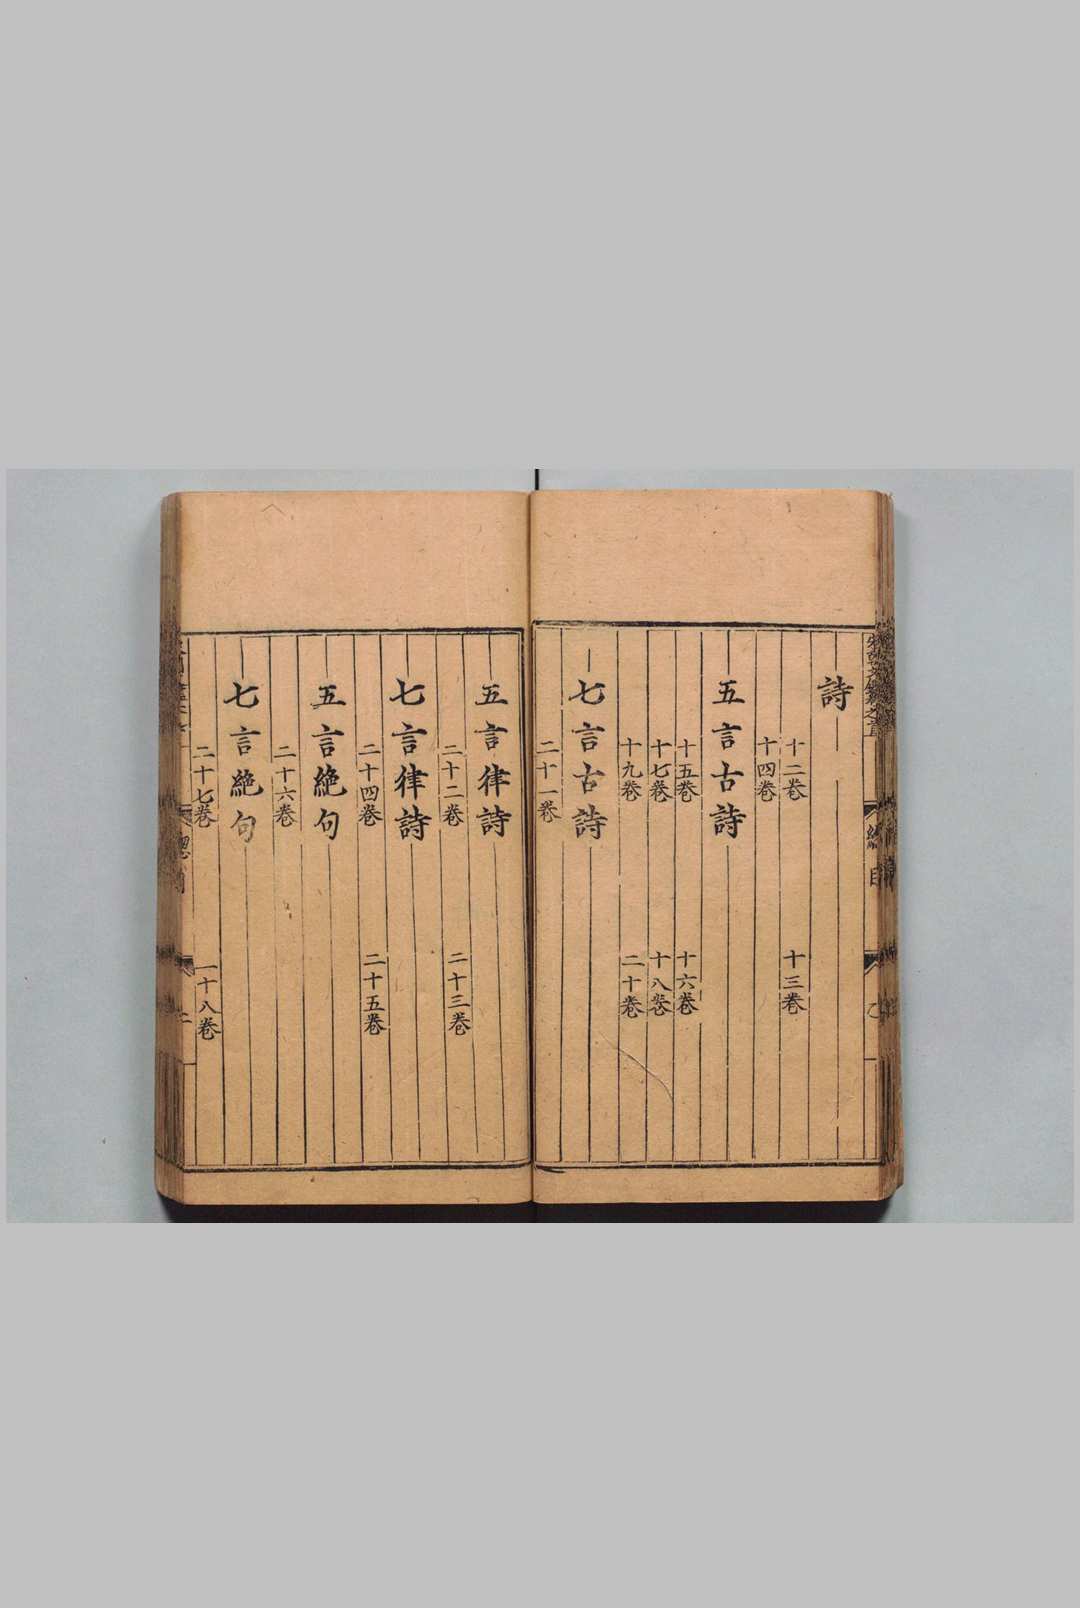 詩
十二卷 十三卷
十四卷
五言古詩
十五卷 十六卷
十七卷 十八卷
十九卷 二十卷
七言古詩
二十一卷
五言律詩
二十二卷 二十三卷
七言律詩
二十四卷 二十五卷
五言絶句
二十六卷
七言絶句
二十七卷 二十八卷
總目